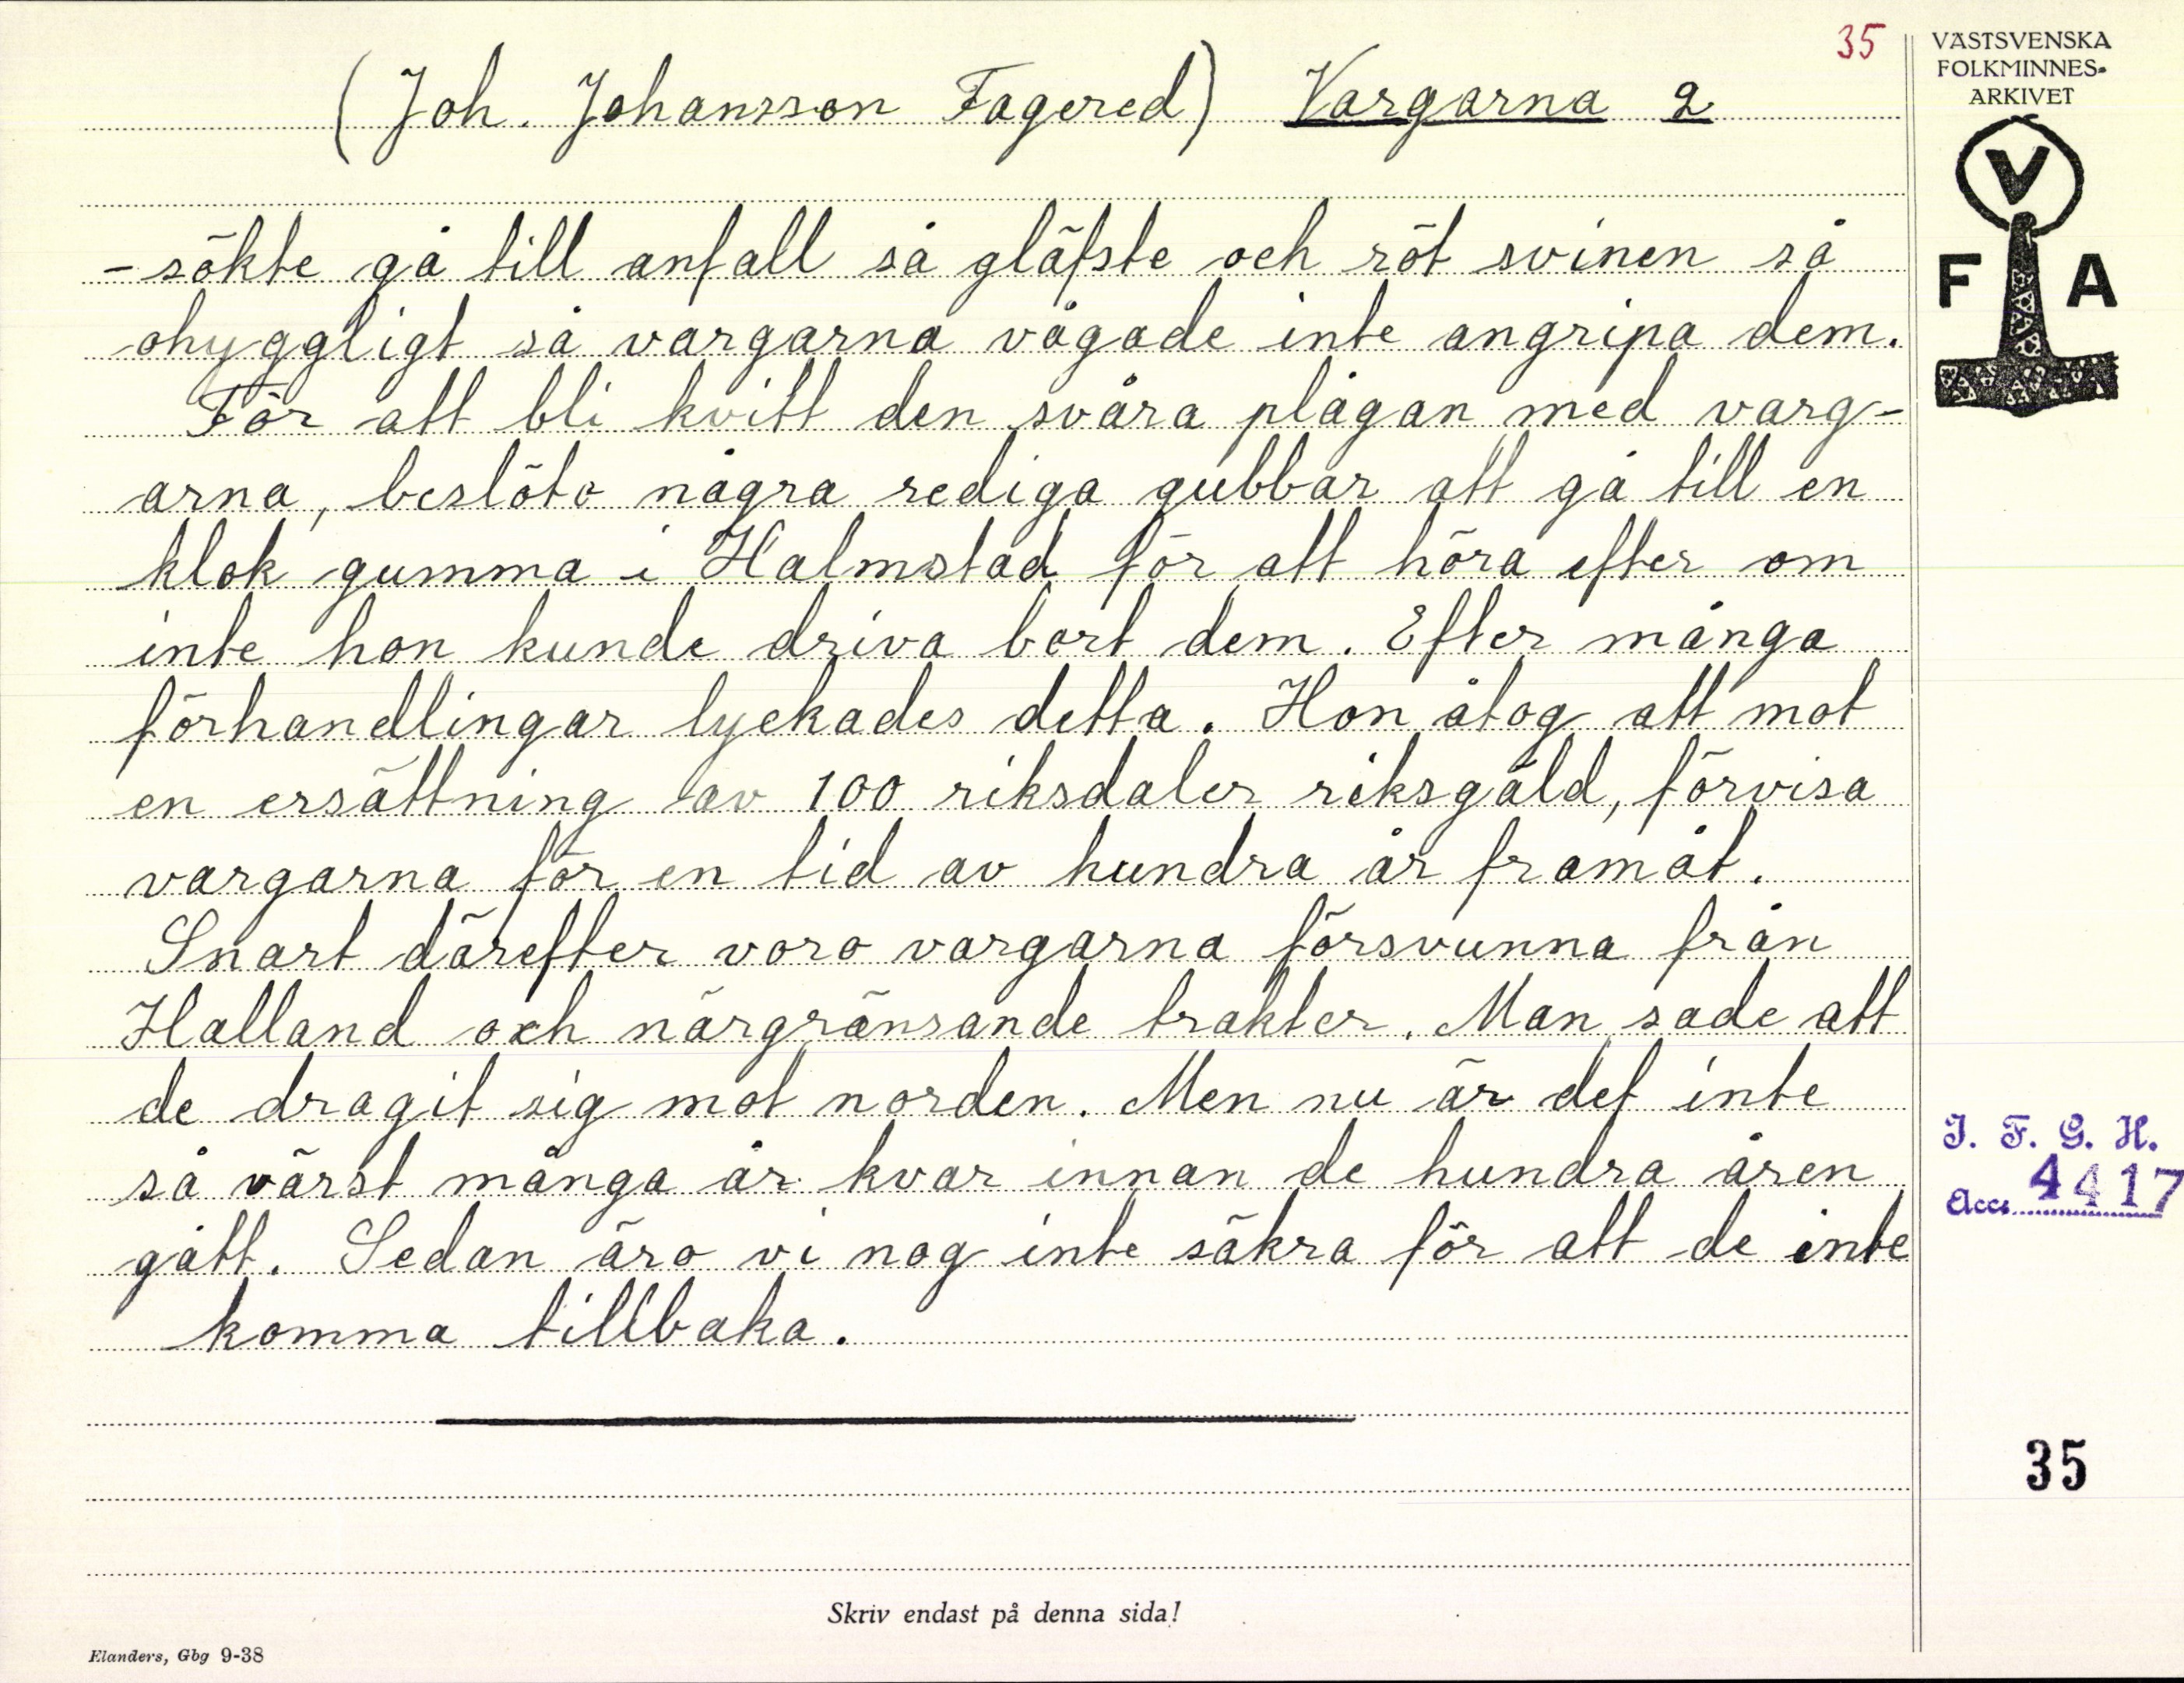 35
(Joh. Johansson Fagered) Vargarna 2
-sökte gå till anfall så gläfste och röt svinen så
ohyggligt så vargarna vågade inte angripa dem.
För att bli kvitt den svåra plågan med varg-
arna, beslöto några rediga gubbar att gå till en
klok gumma i Halmstad för att höra efter om
inte hon kunde driva bort dem. Efter många
förhandlingar lyckades detta. Hon åtog att mot
en ersättning av 100 riksdaler riksgäld, förvisa
vargarna för en tid av hundra år framåt.
Snart därefter voro vargarna försvunna från
Halland och närgränsande trakter. Man sade att
de dragit sig mot norden. Men nu är det inte
så värst många år kvar innan de hundra åren
gått. Sedan äro vi nog inte säkra för att de inte
komma tillbaka.
Skriv endast på denna sida!
Elanders, Gbg 9-38
VÄSTSVENSKA
FOLKMINNES-
ARKIVET
V
F A
I. F. G. H.
Acc. 4417
35